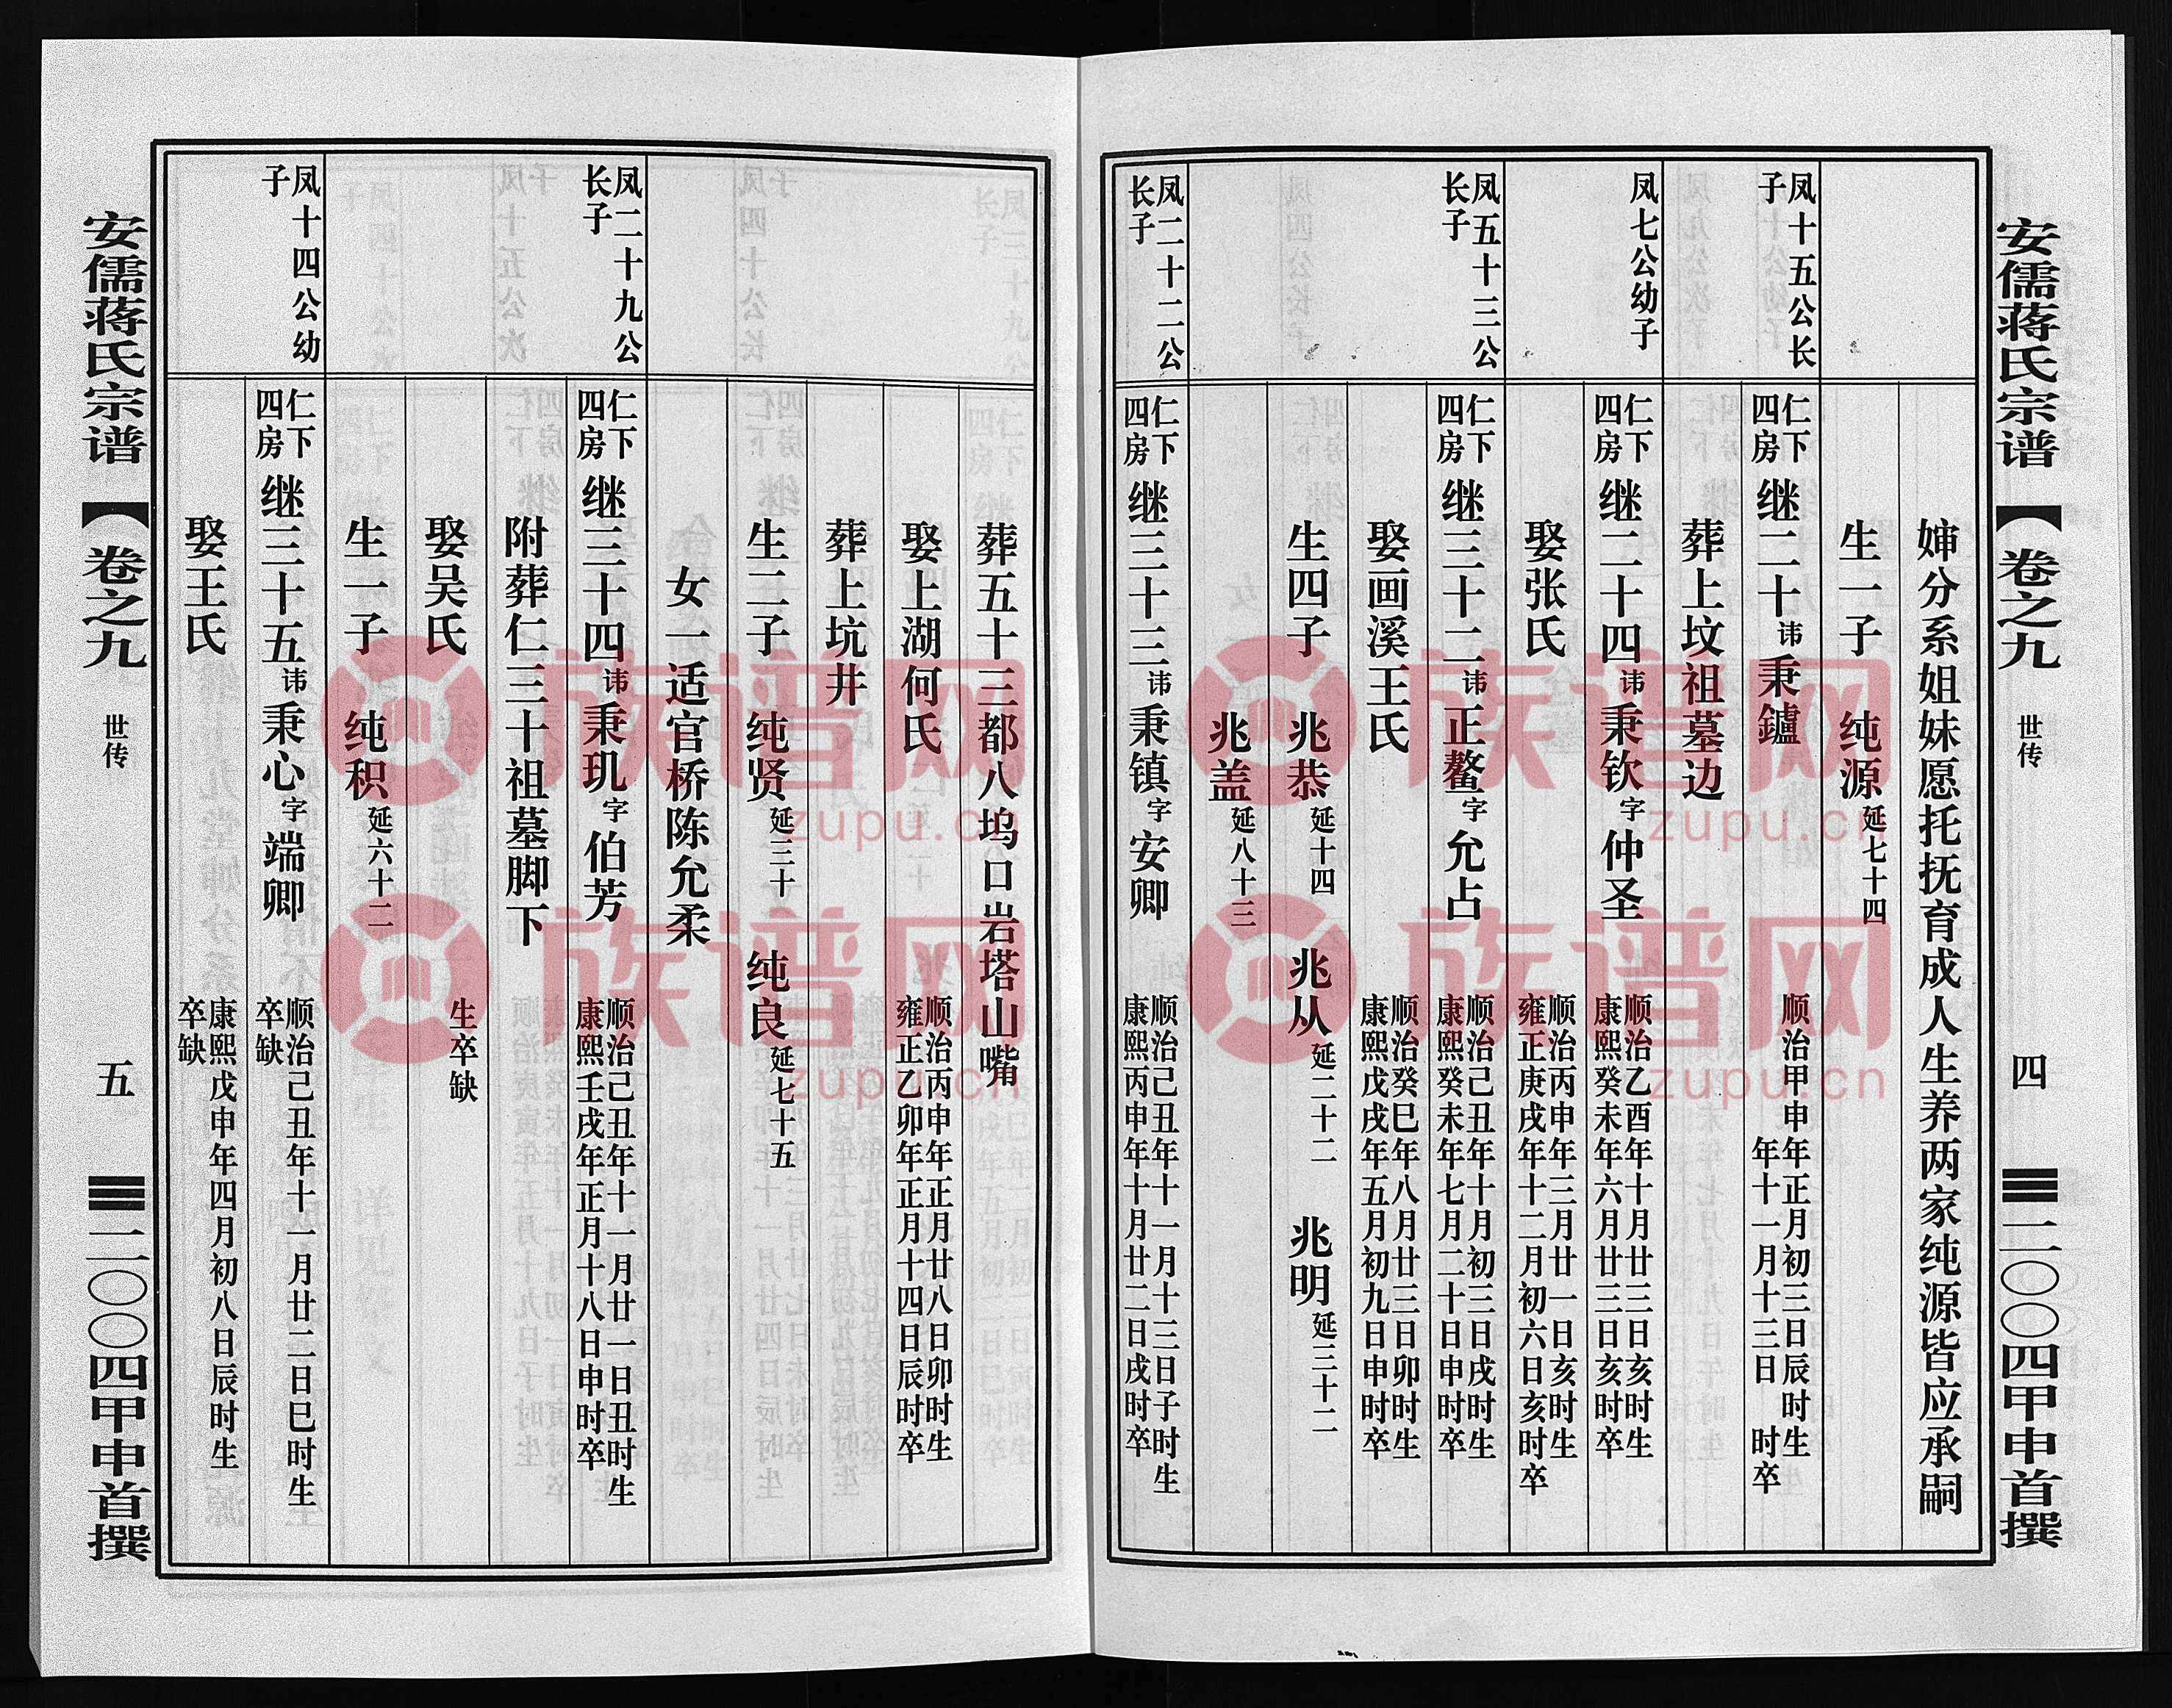 安儒蒋氏宗谱【卷之九 世传 四 二〇〇四甲申首撰
婶分系姐妹愿托抚育成人生养两家纯源皆应承嗣
生一子 纯源延七十四
凤十五公长子
仁下四房 继二十讳秉鑪 顺治甲申年正月初三日辰时生 年十一月十三日 时卒
葬上坟祖墓边
凤七公幼子
仁下四房 继二十四讳秉钦字仲圣 顺治乙酉年十月廿三日亥时生 康熙癸未年六月廿三日亥时卒
娶张氏 顺治丙申年三月廿一日亥时生 雍正庚戌年十二月初六日亥时卒
凤五十三公长子
仁下四房 继三十二讳正鳌字允占 顺治己丑年十月初三日戌时生 康熙癸未年七月二十日申时卒
娶画溪王氏 顺治癸巳年八月廿三日卯时生 康熙戊戌年五月初九日申时卒
生四子 兆恭延十四 兆从延二十二 兆明延三十二
兆盖延八十三
凤二十二公长子
仁下四房 继三十三讳秉镇字安卿 顺治己丑年十一月十三日子时生 康熙丙申年十月廿二日戌时卒
葬五十三都八坞口岩塔山嘴
娶上湖何氏 顺治丙申年正月廿八日卯时生 雍正乙卯年正月十四日辰时卒
葬上坑井
生二子 纯贤延三十 纯良延七十五
女一适官桥陈允柔
凤二十九公长子
仁下四房 继三十四讳秉玑字伯芳 顺治己丑年十一月廿一日丑时生 康熙壬戌年正月十八日申时卒
附葬仁三十祖墓脚下
娶吴氏 生卒缺
生一子 纯积延六十二
凤十四公幼子
仁下四房 继三十五讳秉心字端卿 顺治己丑年十一月廿二日巳时生 卒缺
娶王氏 康熙戊申年四月初八日辰时生 卒缺
安儒蒋氏宗谱【卷之九 世传 五 二〇〇四甲申首撰
族谱网
zupu.cn
族谱网
zupu.cn
族谱网
zupu.cn
族谱网
zupu.cn